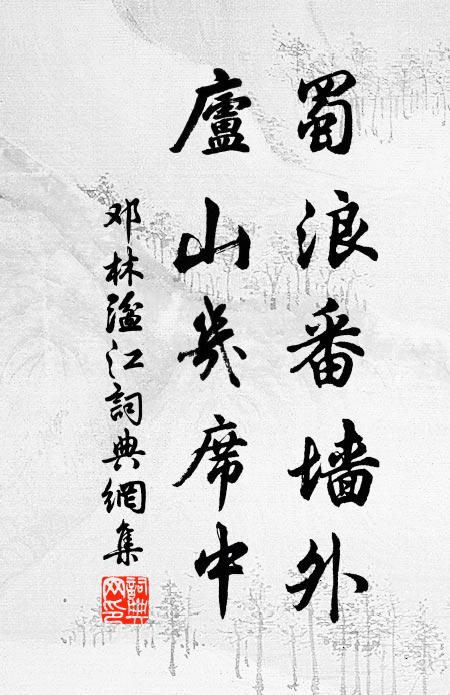 蜀浪番墙外
廬山幾席中
邓林湓江詞典網集
詞典